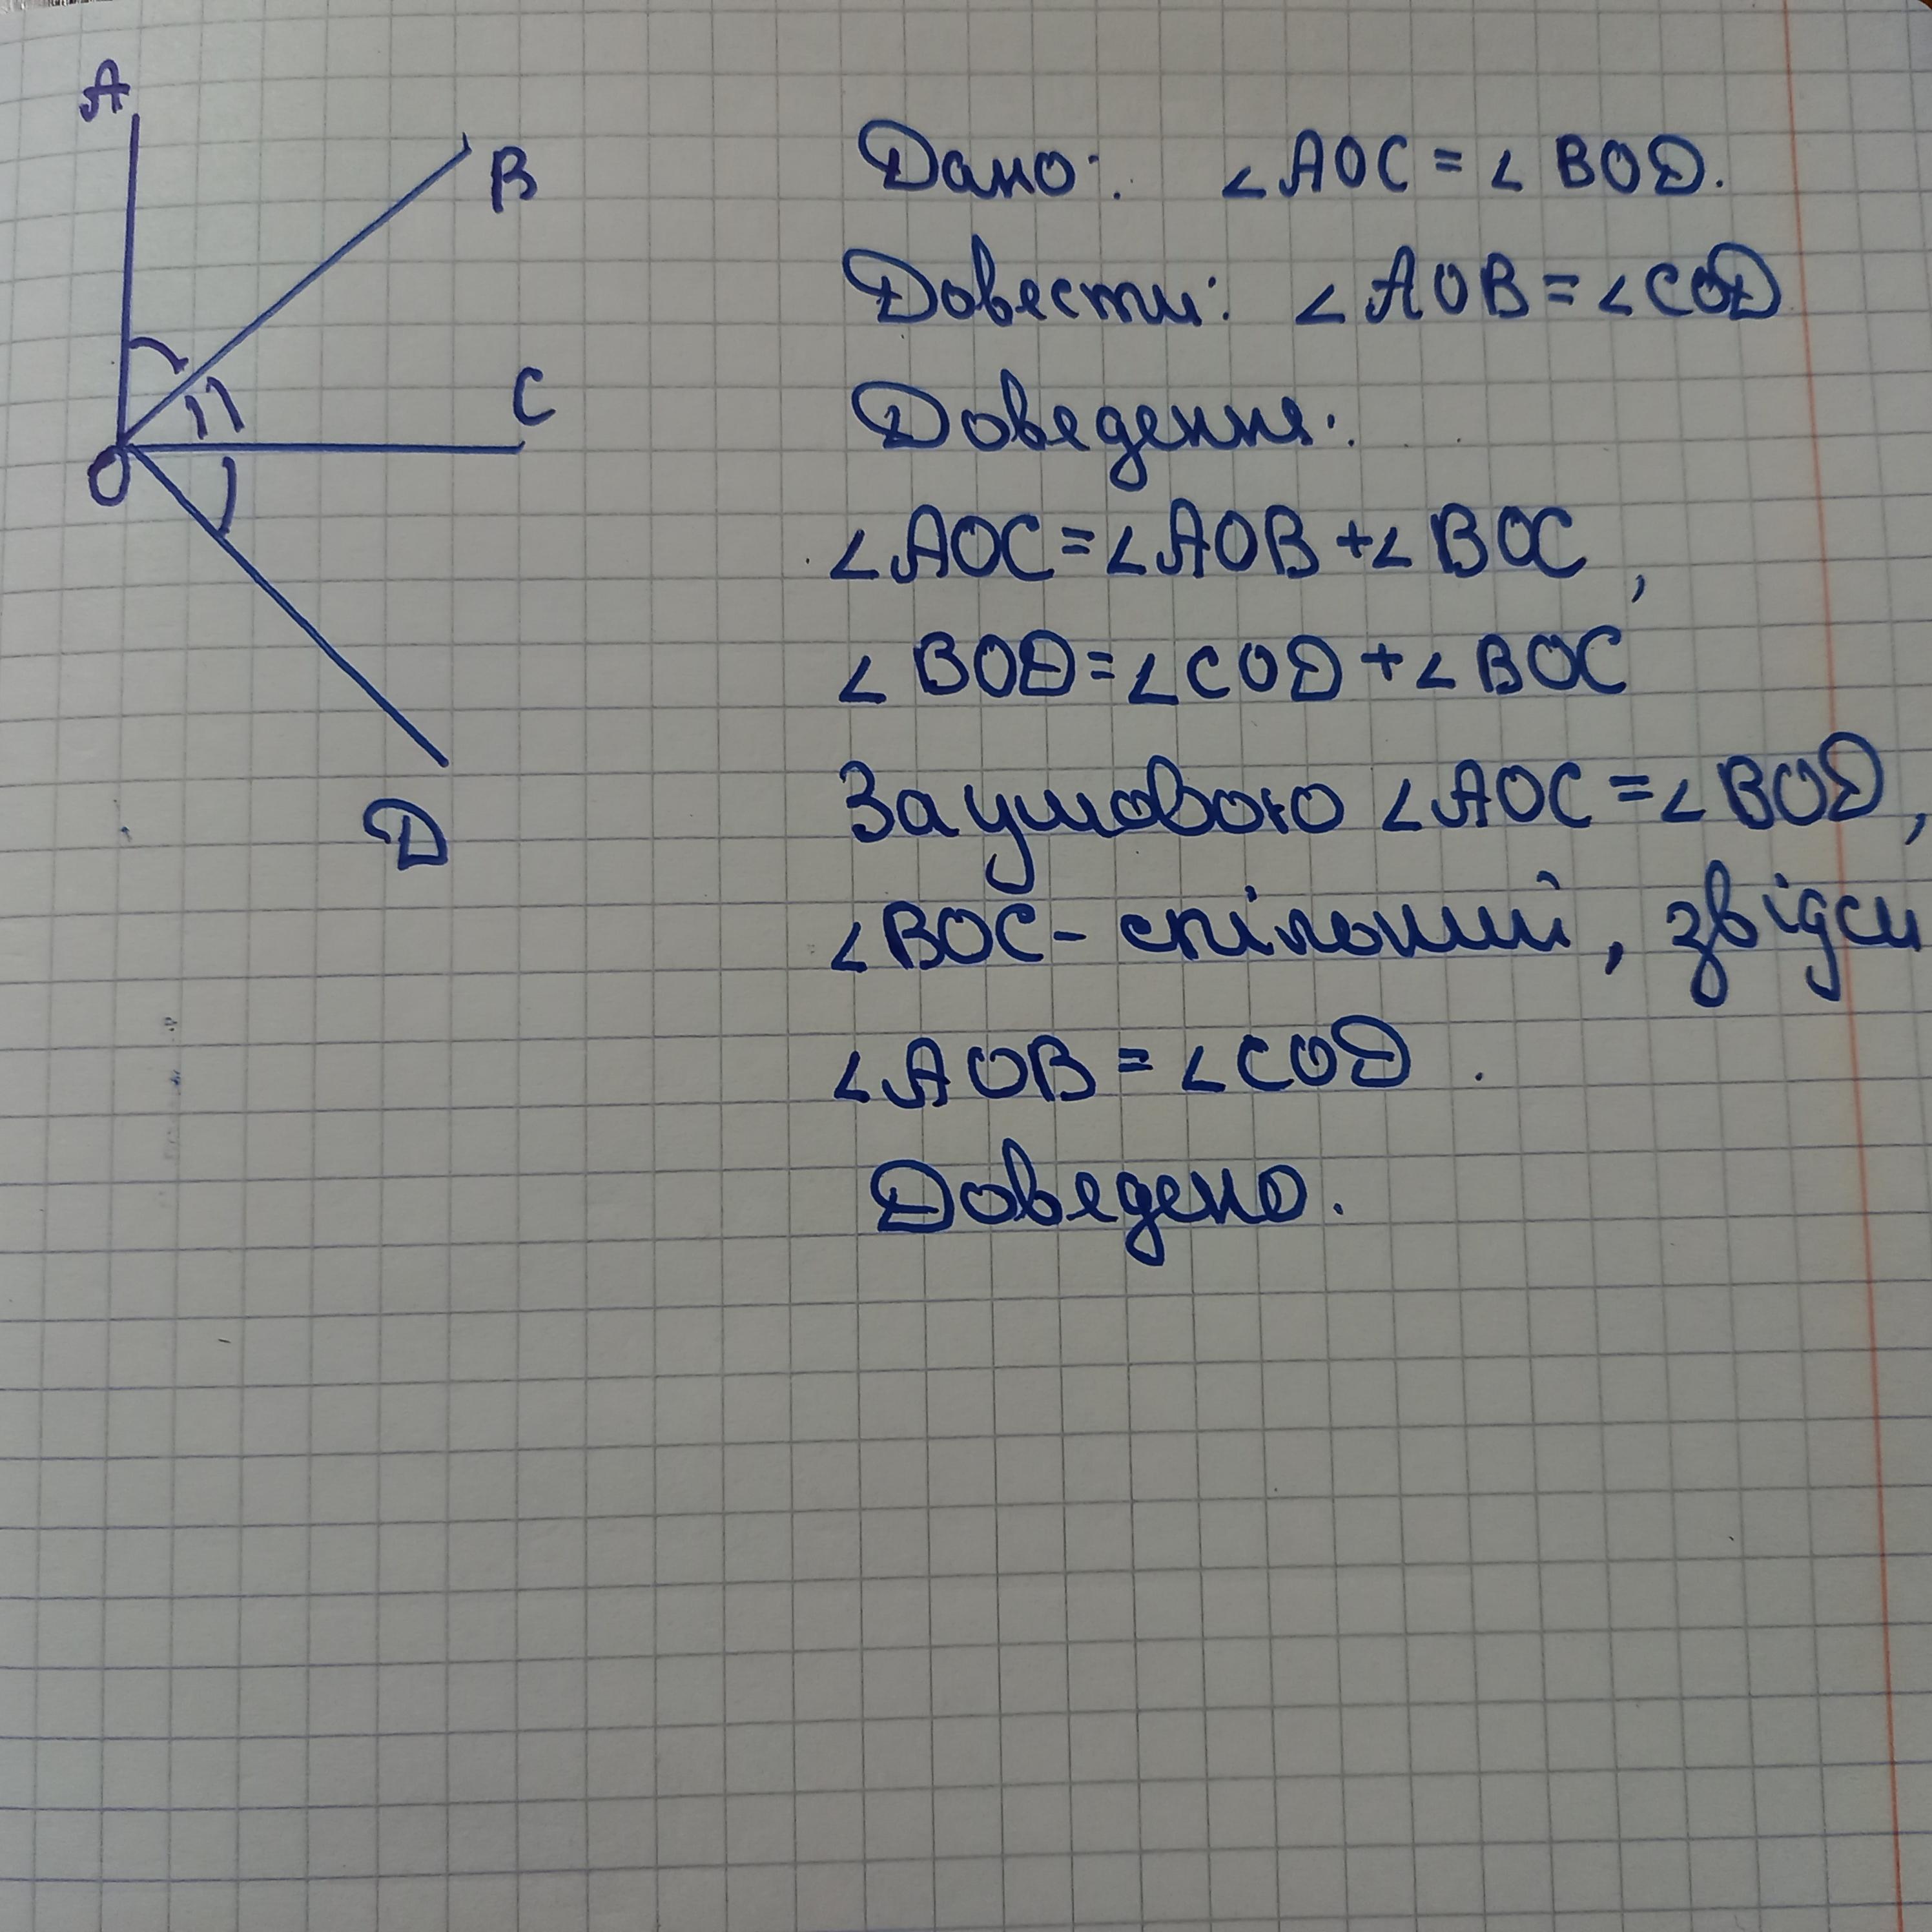 A
B
C
O
D
Дано: ∠AOC = ∠BOD.
Довести: ∠AOB = ∠COD
Доведення:
∠AOC = ∠AOB + ∠BOC,
∠BOD = ∠COD + ∠BOC
За умовою ∠AOC = ∠BOD,
∠BOC - спільний, звідси
∠AOB = ∠COD.
Доведено.